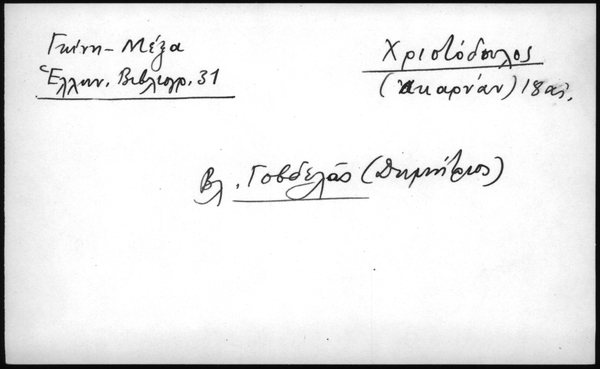 Γκίνη-Μέξα
Ἑλλην. Βιβλιογρ. 31
Χριστόδουλος
(Ἀκαρνάν) 18 αἰ.
Βλ. Γοβδελᾶς (Δημήτριος)